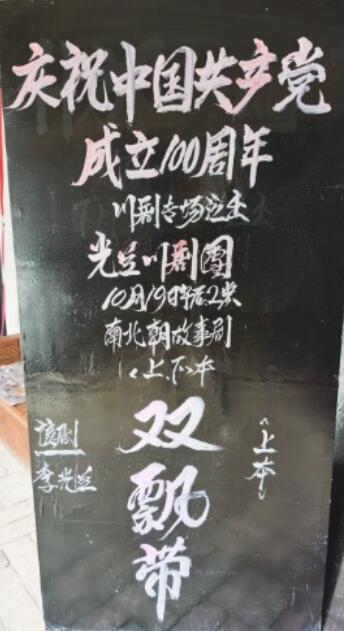 庆祝中国共产党
成立100周年
川剧专场演出
光兰川剧团
10月19日午后2点
南北朝故事剧
<上.下>本
双飘带
<上本>
李光兰